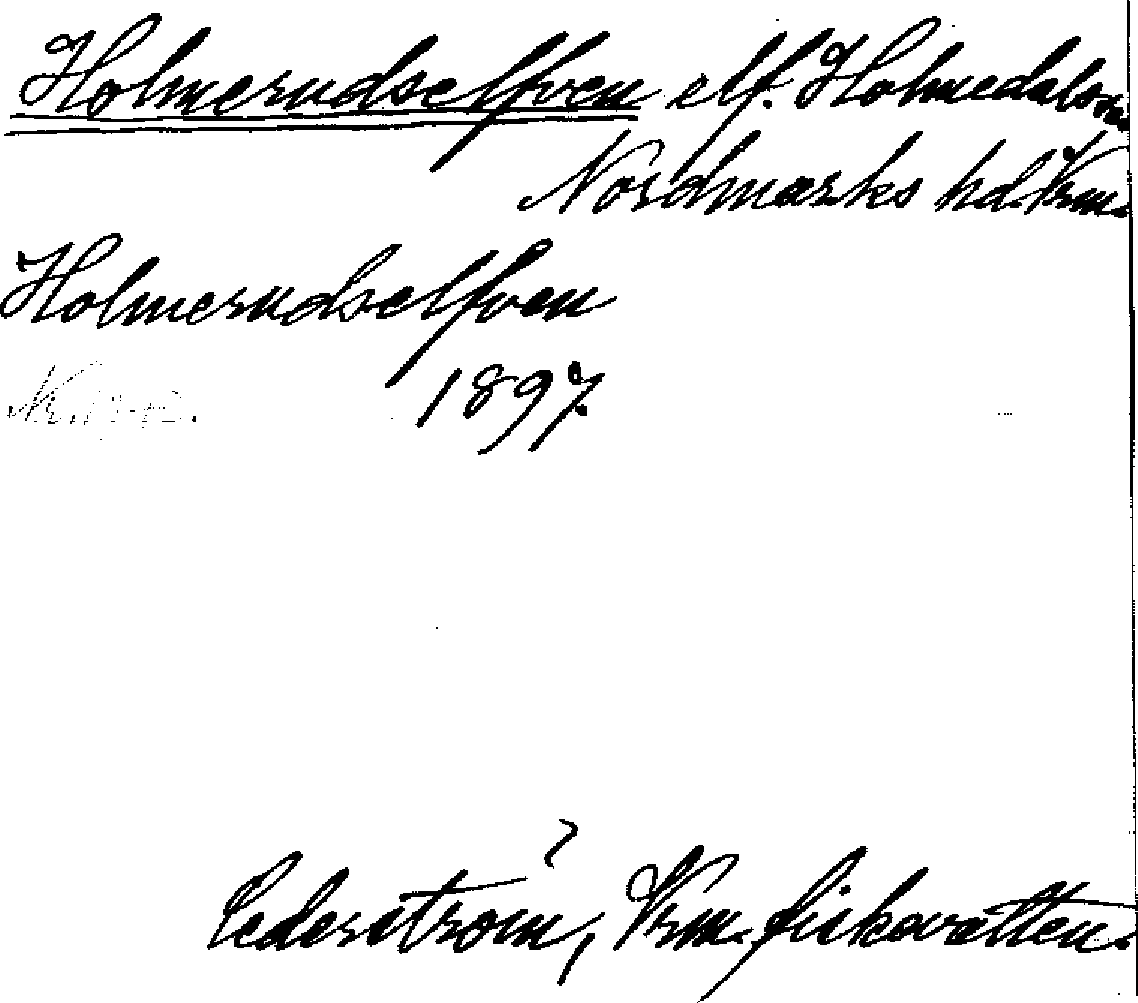 Holmerudselfven elf. Holmedals sn.
Nordmarks hd. Vrm.
Holmerudselfven
1897.
Cederström, Vrm. fiskevatten.